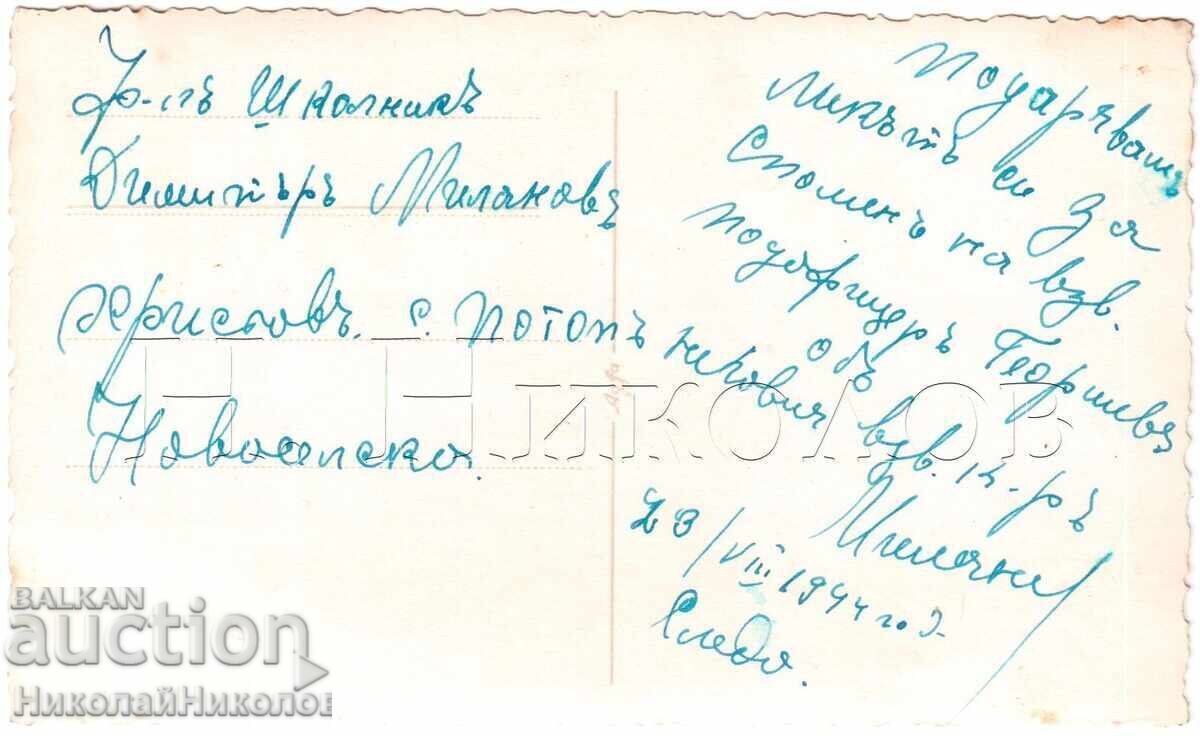 Ф-лъ Школникъ
Димитъръ Милановъ
Христовъ. с. Потопъ
Новоселска.
Подарявамъ
Ликътъ си за
споменъ на взв.
подофицеръ Георгиевъ
отъ
неговия взв. к-ръ
Миланов
23/VIII 1944 го д.
Н. НИКОЛОВ
BALKAN
auction
НиколайНиколов